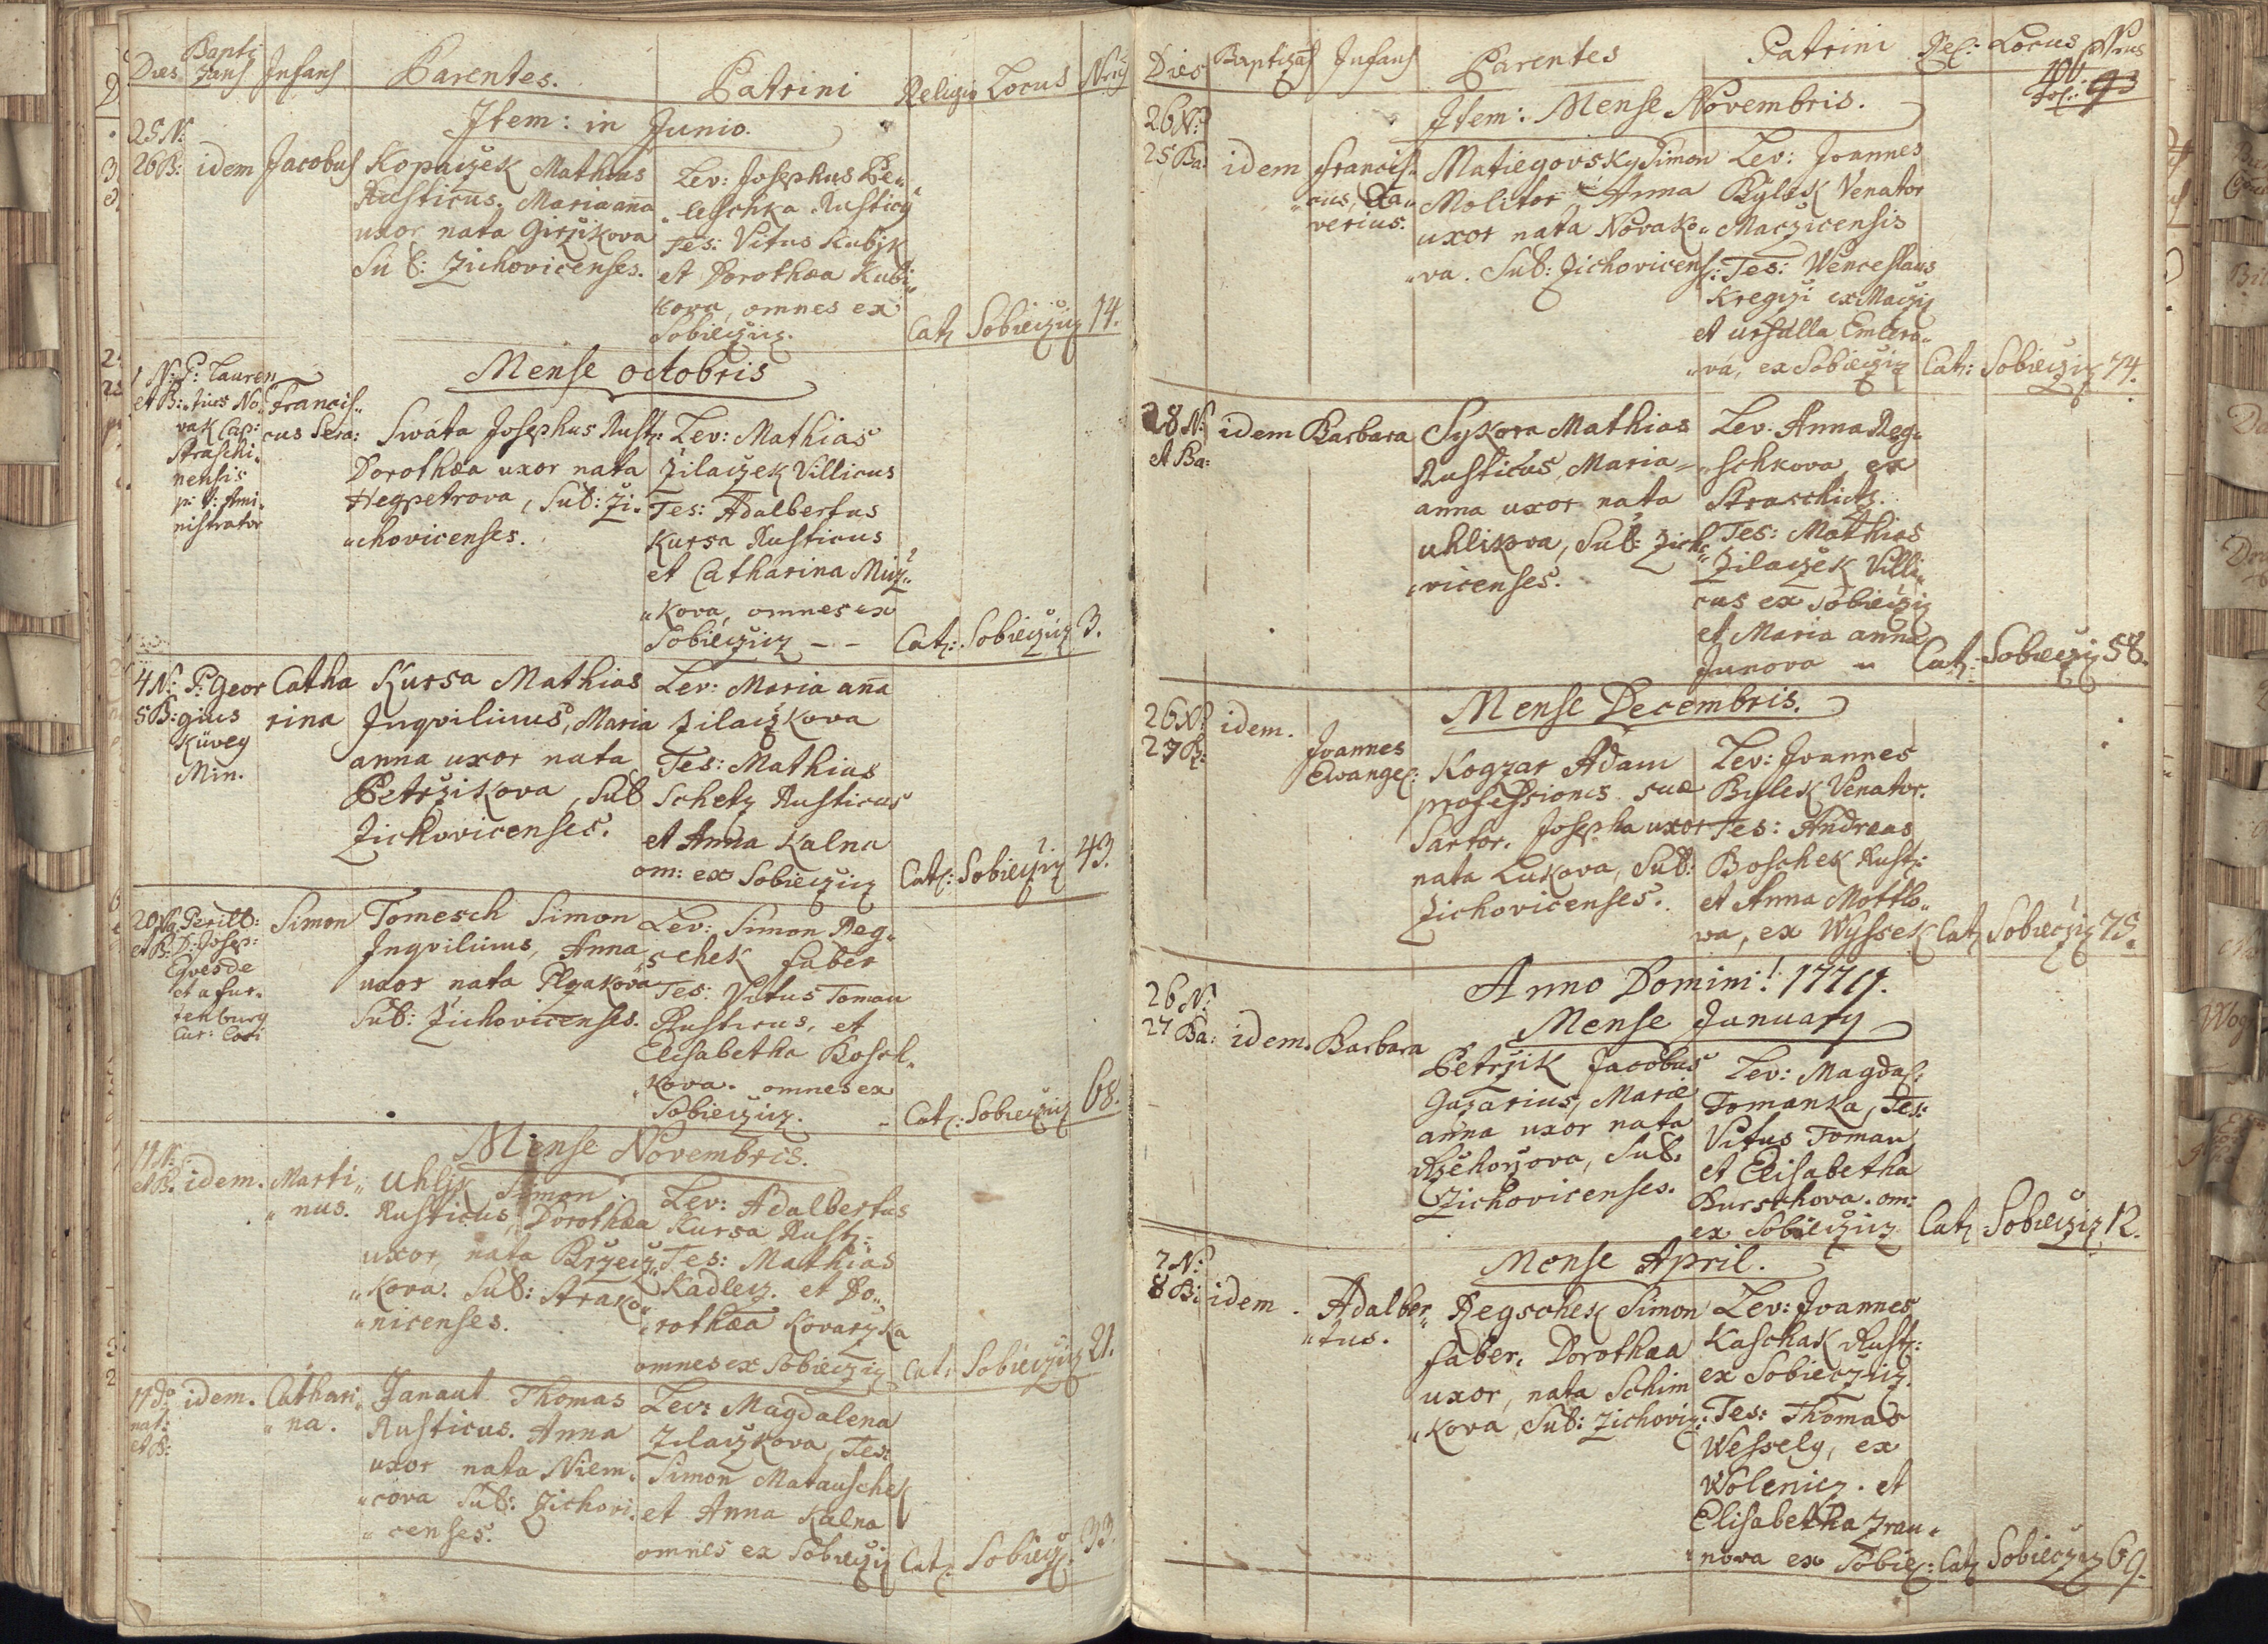 Dies Bapti zans Infans Parentes. Patrini Religio Locus Nrus
Item: in Junio.
25 N:
26 B: idem Jacobus
Kopaczek Mathias
Rusticus. Mariaana
uxor nata Girzikova
Sub: Zichovicenses.
Lev: Josephus Be„
„leschka Rusticus
Tes: Vitus Kubjk
et Dorothæa Kubi„
kova, omnes ex
Sobieczicz. Cat: Sobieczicz 14.
Mense octobris
1 N: P: Lauren„
et B: „tius No„
vak Cap:
Straschi„
nensis
p: t: Ami„
nistrator
Francis„
cus Sera:
Swáta Josephus Rust:
Dorothæa uxor nata
Hegpetrova, Sub: Zi„
„chovicenses.
Lev: Mathias
Zilaczek Villicus
Tes: Adalbertus
Kursa Rusticus
et Catharina Muz„
„kova, omnes ex
Sobieczicz - - Cat: Sobieczicz 3.
4 N: P: Geor
5 B: gius
Küveg
Min.
Catha
rina
Kursa Mathias
Inqvilinus, Maria
anna uxor nata
Petrzikova, Sub
Zichovicenses.
Lev: Maria ana
Zilaczkova
Tes: Mathias
Schetz Rusticus
et Anna Kalna
om: ex Sobieczicz Cat: Sobieczicz 43.
20 N: Perill:
et B: D: Josep:
Eqves de
et a fur„
tenburg
Cur: Loci
Simon
Tomesch Simon
Inqvilinus, Anna
uxor nata Plzakova
Sub: Zichovicenses.
Lev: Simon Reg„
„schek faber
Tes: Vitus Toman
Rusticus, et
Elisabetha Bosch„
„kova. omnes ex
Sobieczicz. Cat: Sobieczicz 68.
Mense Novembris.
11 N:
et B: idem. Marti„
„nus.
Uhljk Simon
Rusticus, Dorothæa
uxor, nata Brzecz„
„kova. Sub: Strako„
„nicenses.
Lev: Adalbertus
Kursa Rust:
Tes: Mathias
Kadlecz. et Do„
„rothæa Kovarzka
omnes ex Sobieczicz Cat: Sobieczicz 21.
11 do
nat:
et B: idem. Cathari„
„na.
Janaut Thomas
Rusticus. Anna
uxor nata Niem„
„cova Sub: Zichovi„
„censes.
Lev: Magdalena
Zilaczkova, Tes:
Simon Matauschek
et Anna Kalna
omnes ex Sobieczicz Cat: Sobiecz: 33.
Dies Baptizans Infans Parentes Patrini Rel: Locus Nrus
fol: 93
Item: Mense Novembris.
26 N:
25 Ba: idem francis„
„cus, Xa„
verius.
Matiegovsky Simon
Molitor et Anna
uxor nata Novako„
„va. Sub: Zichovicens:
Lev: Joannes
Bylek Venator
Maczicensis
Tes: Wenceslaus
Kregczi ex Maczicz
et ursulla Emlero„
„va, ex Sobieczicz Cat: Sobieczicz 74.
28 N:
et Ba: idem Barbara
Sykora Mathias
Rusticus, Maria=
anna uxor nata
uhlikova, Sub: Zicho„
„vicenses.
Lev: Anna Reg„
„schkova, ex
Straschitz.
Tes: Mathias
Zilaczek Villi„
cus ex Sobieczicz
et Maria anna
Junova Cat: Sobieczicz 58.
Mense Decembris.
26 N:
27 B: idem. Joannes
Ewangel:
Kogzar Adam
professionis suæ
Sartor. Josepha uxor
nata Lukova, Sub:
Zichovicenses.
Lev: Joannes
Bylek Venator.
Tes: Andreas
Boschek Rust:
et Anna Mottlo„
va, ex Wyssek Cat: Sobieczicz 75.
Anno Domini! 1774.
Mense January
26 N:
27 Ba: idem. Barbara
Petrzik Jacobus
Gazarius, Marie
anna uxor nata
Rzehorzova, Sub:
Zichovicenses.
Lev: Magdal:
Tomanka, Tes:
Vitus Toman
et Elisabetha
Burschova. om:
ex Sobieczicz Cat: Sobieczicz 12.
Mense April.
7 N:
8 B: idem. Adalber„
„tus.
Regschek Simon
faber. Dorothæa
uxor, nata Schim
„kova, Sub: Zichovic:
Lev: Joannes
Kaschak Rust:
ex Sobieczicz.
Tes: Thomas
Wessely, ex
Wolenicz. et
Elisabetha Jrau„
„nova ex Sobie: Cat: Sobieczicz 69.